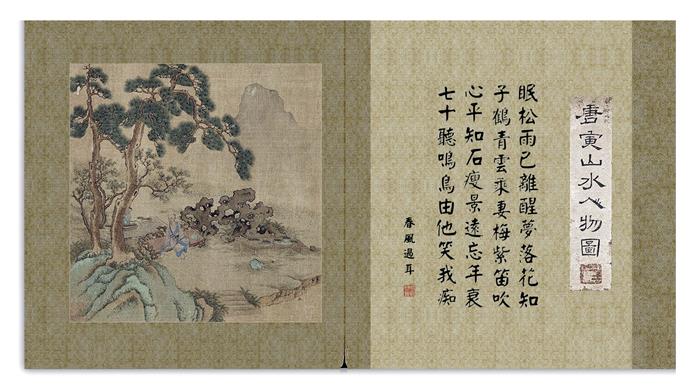 唐寅山水人物圖
眠松雨已離醒夢落花知
子鶴青雲乘妻梅紫笛吹
心平知石瘦景遠忘年衰
七十聽鳴鳥由他笑我痴
春風過耳